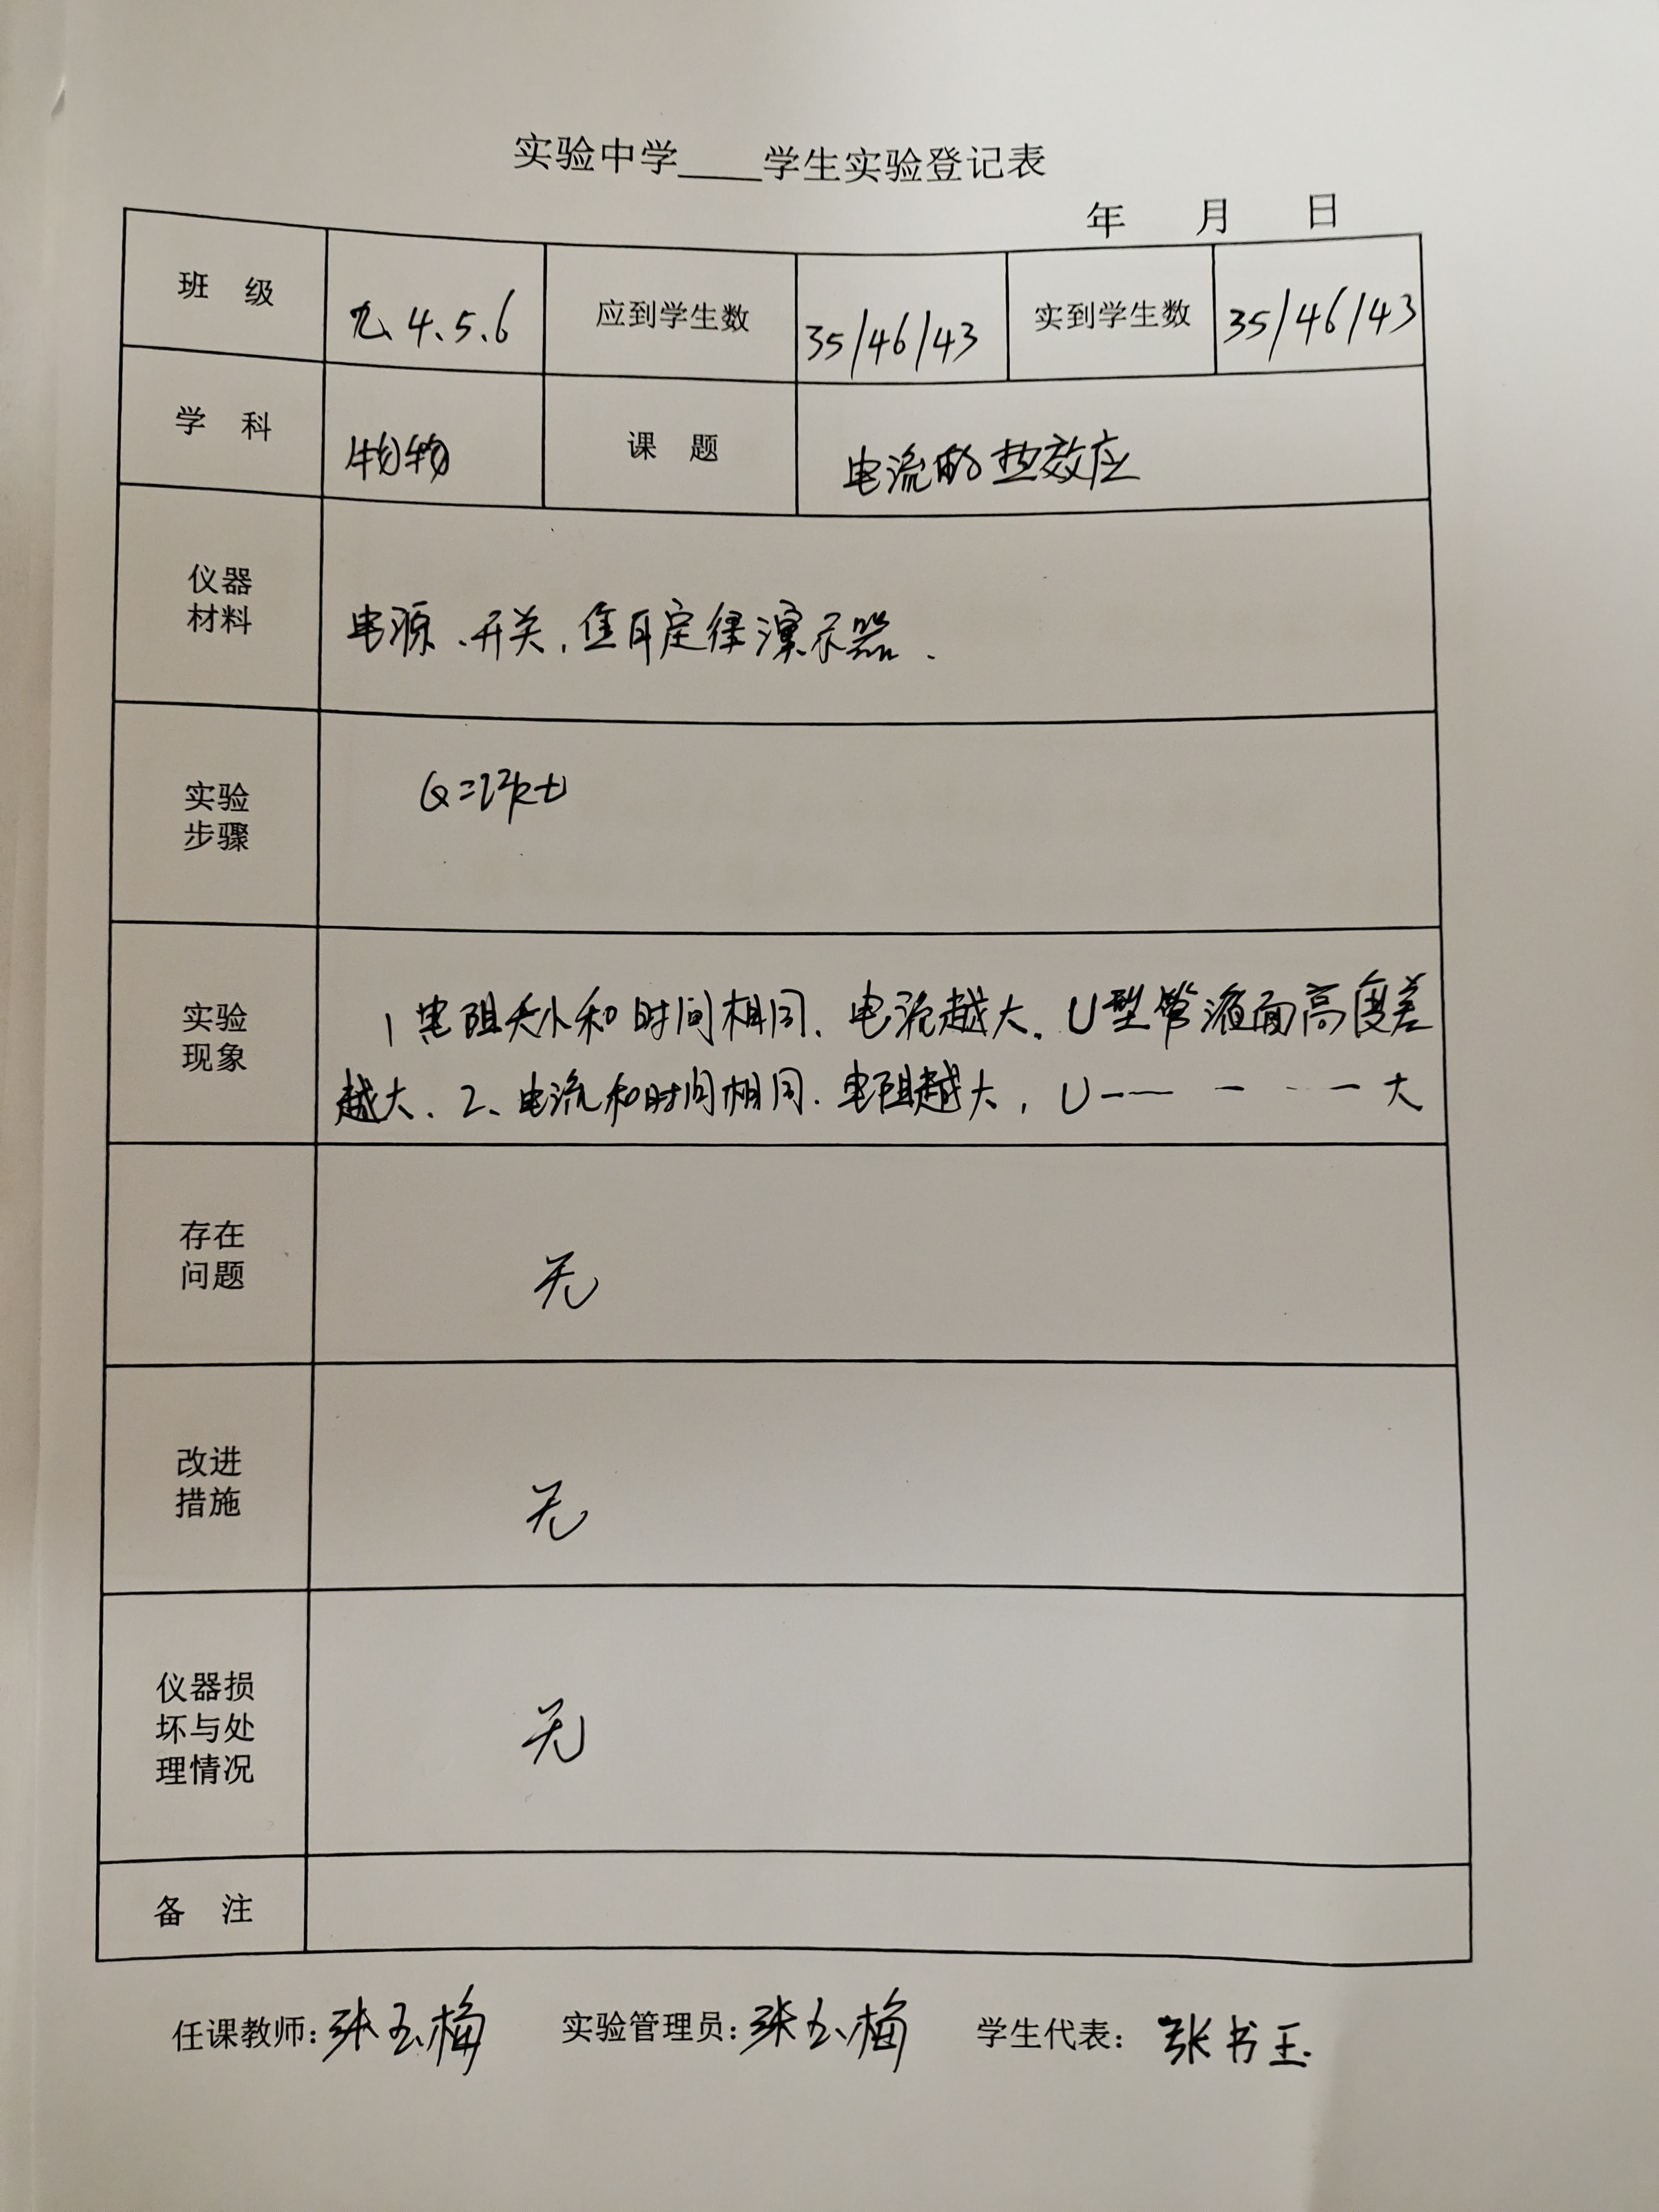 实验中学____学生实验登记表
年 月 日
班 级 九.4.5.6 应到学生数 35/46/43 实到学生数 35/46/43
学 科 物 课 题 电流的热效应
仪器
材料
电源、开关,焦耳定律演示器.
实验
步骤
Q=I²Rt
实验
现象
1 电阻大小和时间相同、电流越大.U型管液面高度差
越大、2、电流和时间相同.电阻越大,U—— — - - — 大
存在
问题
无
改进
措施
无
仪器损
坏与处
理情况
无
备 注
任课教师:张玉梅 实验管理员:张玉梅 学生代表:张书玉